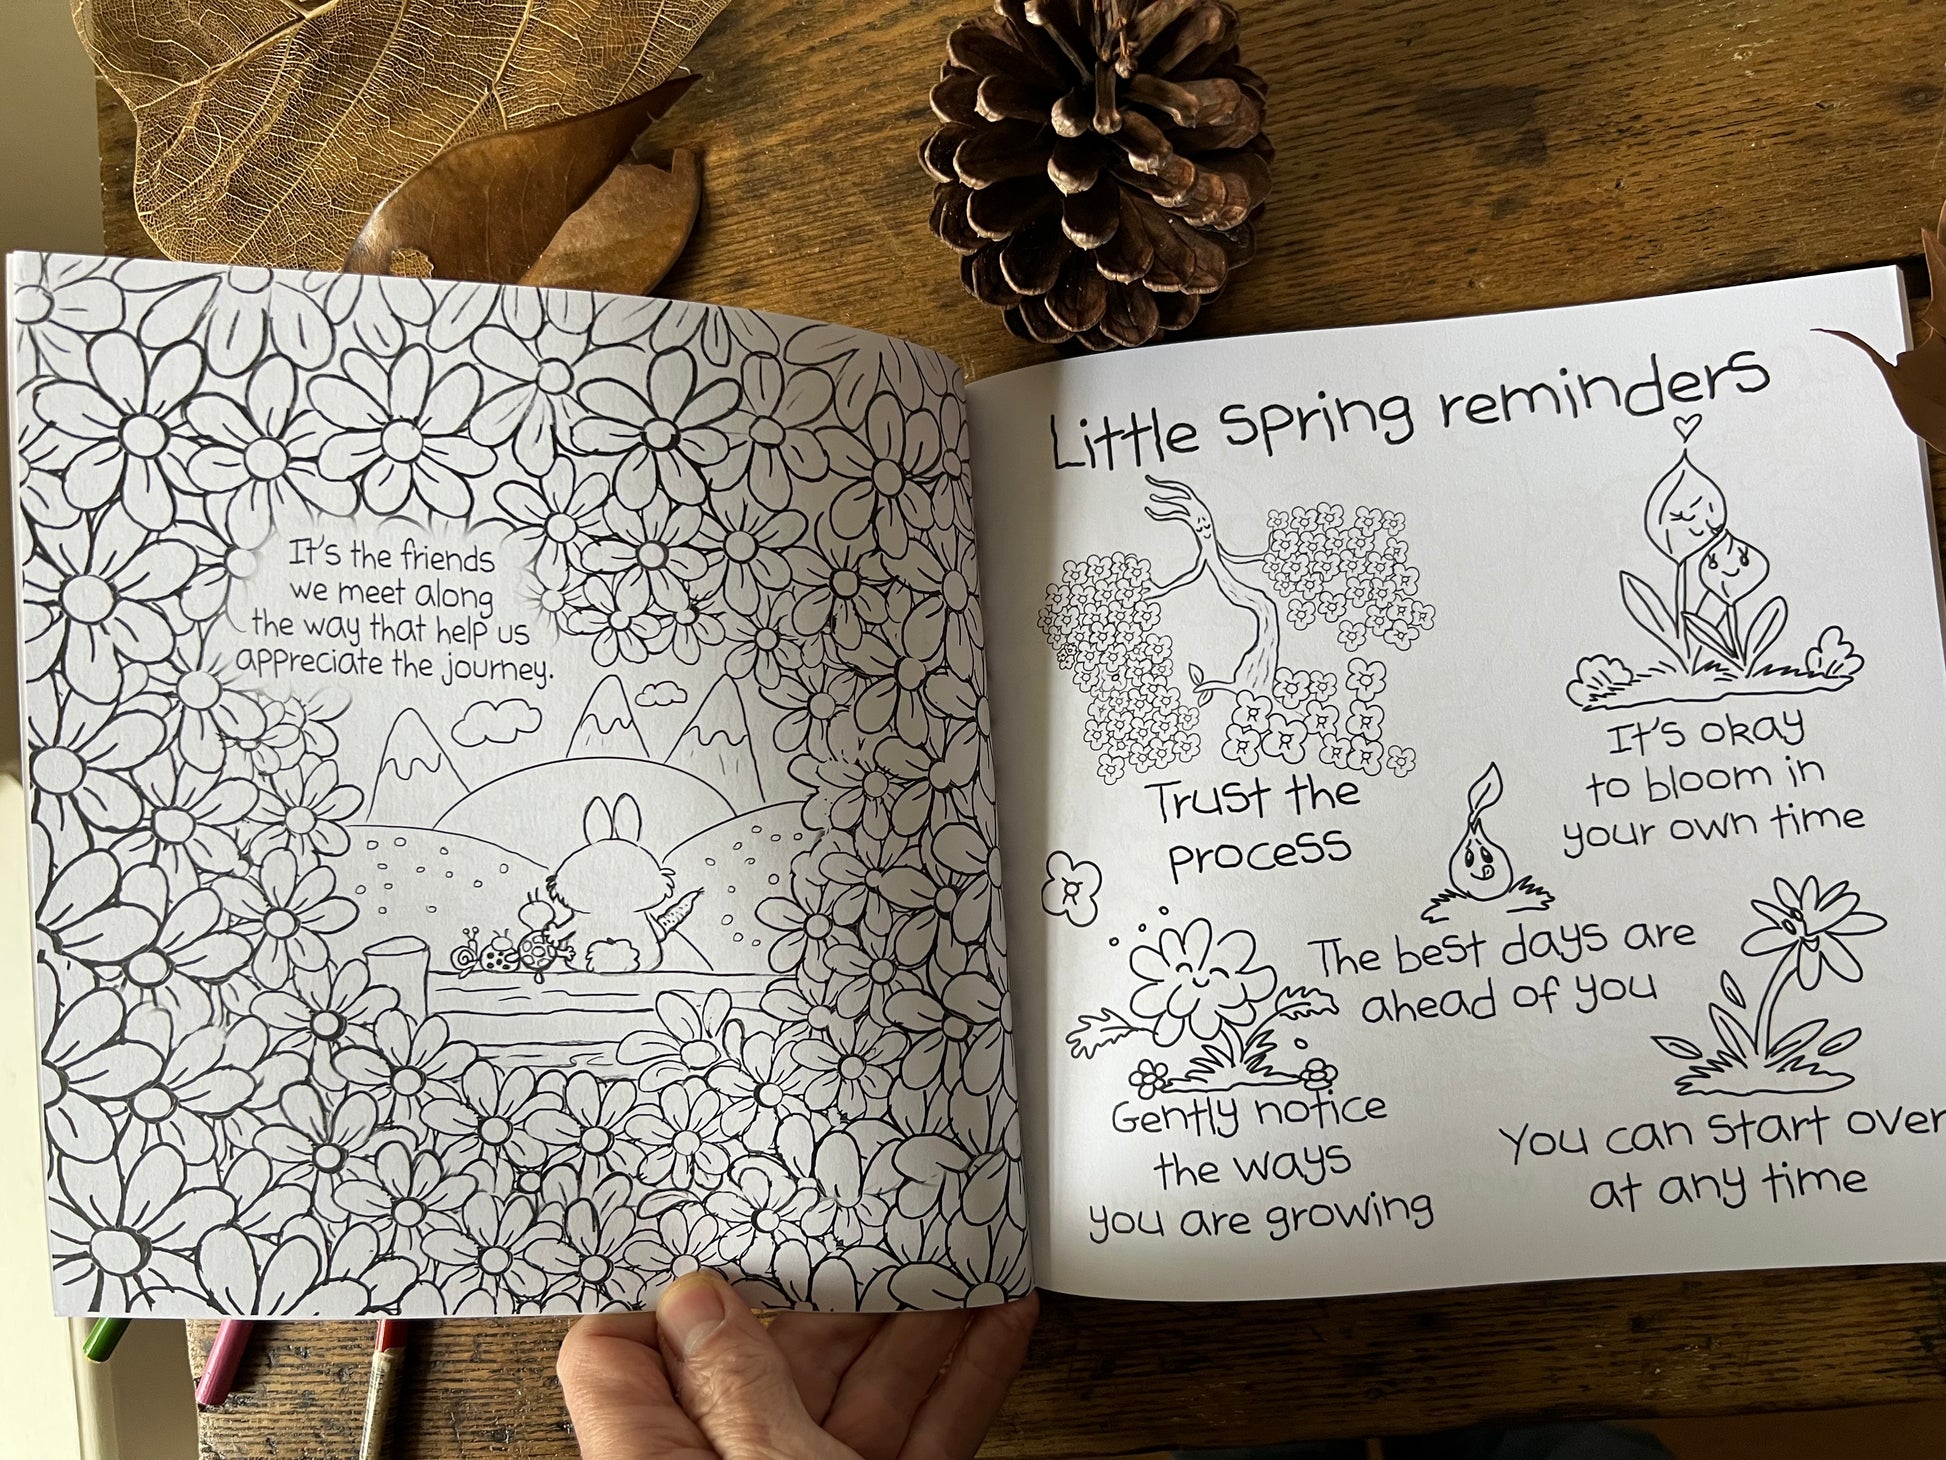 It's the friends
we meet along
the way that help us
appreciate the journey.
Little Spring reminders
Trust the
process
It's okay
to bloom in
your own time
The best days are
ahead of you
Gently notice
the ways
you are growing
You can start over
at any time